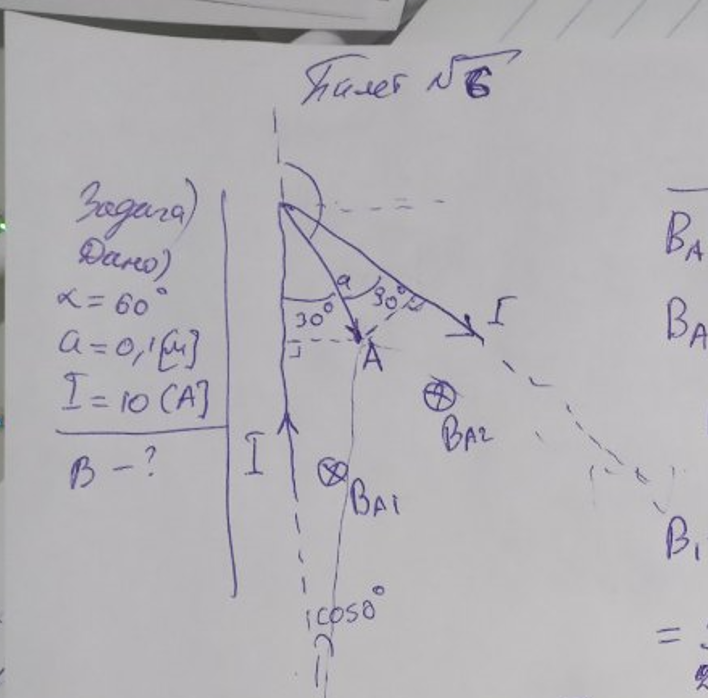 Билет №6
Задача)
Дано)
α = 60°
a = 0,1 [м]
I = 10 (А]
B - ?
a
30°
30°
I
A
I
BA1
BA2
cos0°
BA
BA
B1
=